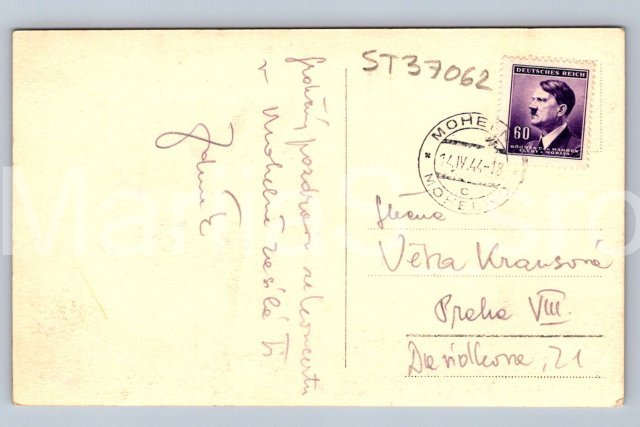 ST37062
DEUTSCHES REICH
60
BÖHMEN u. MÄHREN
ČECHY a MORAVA
MOHELNO
14.IV.44-18
C
MOHELNO
pozdrav ze koncertu
v Mohelně zasílá Ti
Slečna
Věra Krausová
Praha VIII.
Davidkova, 21